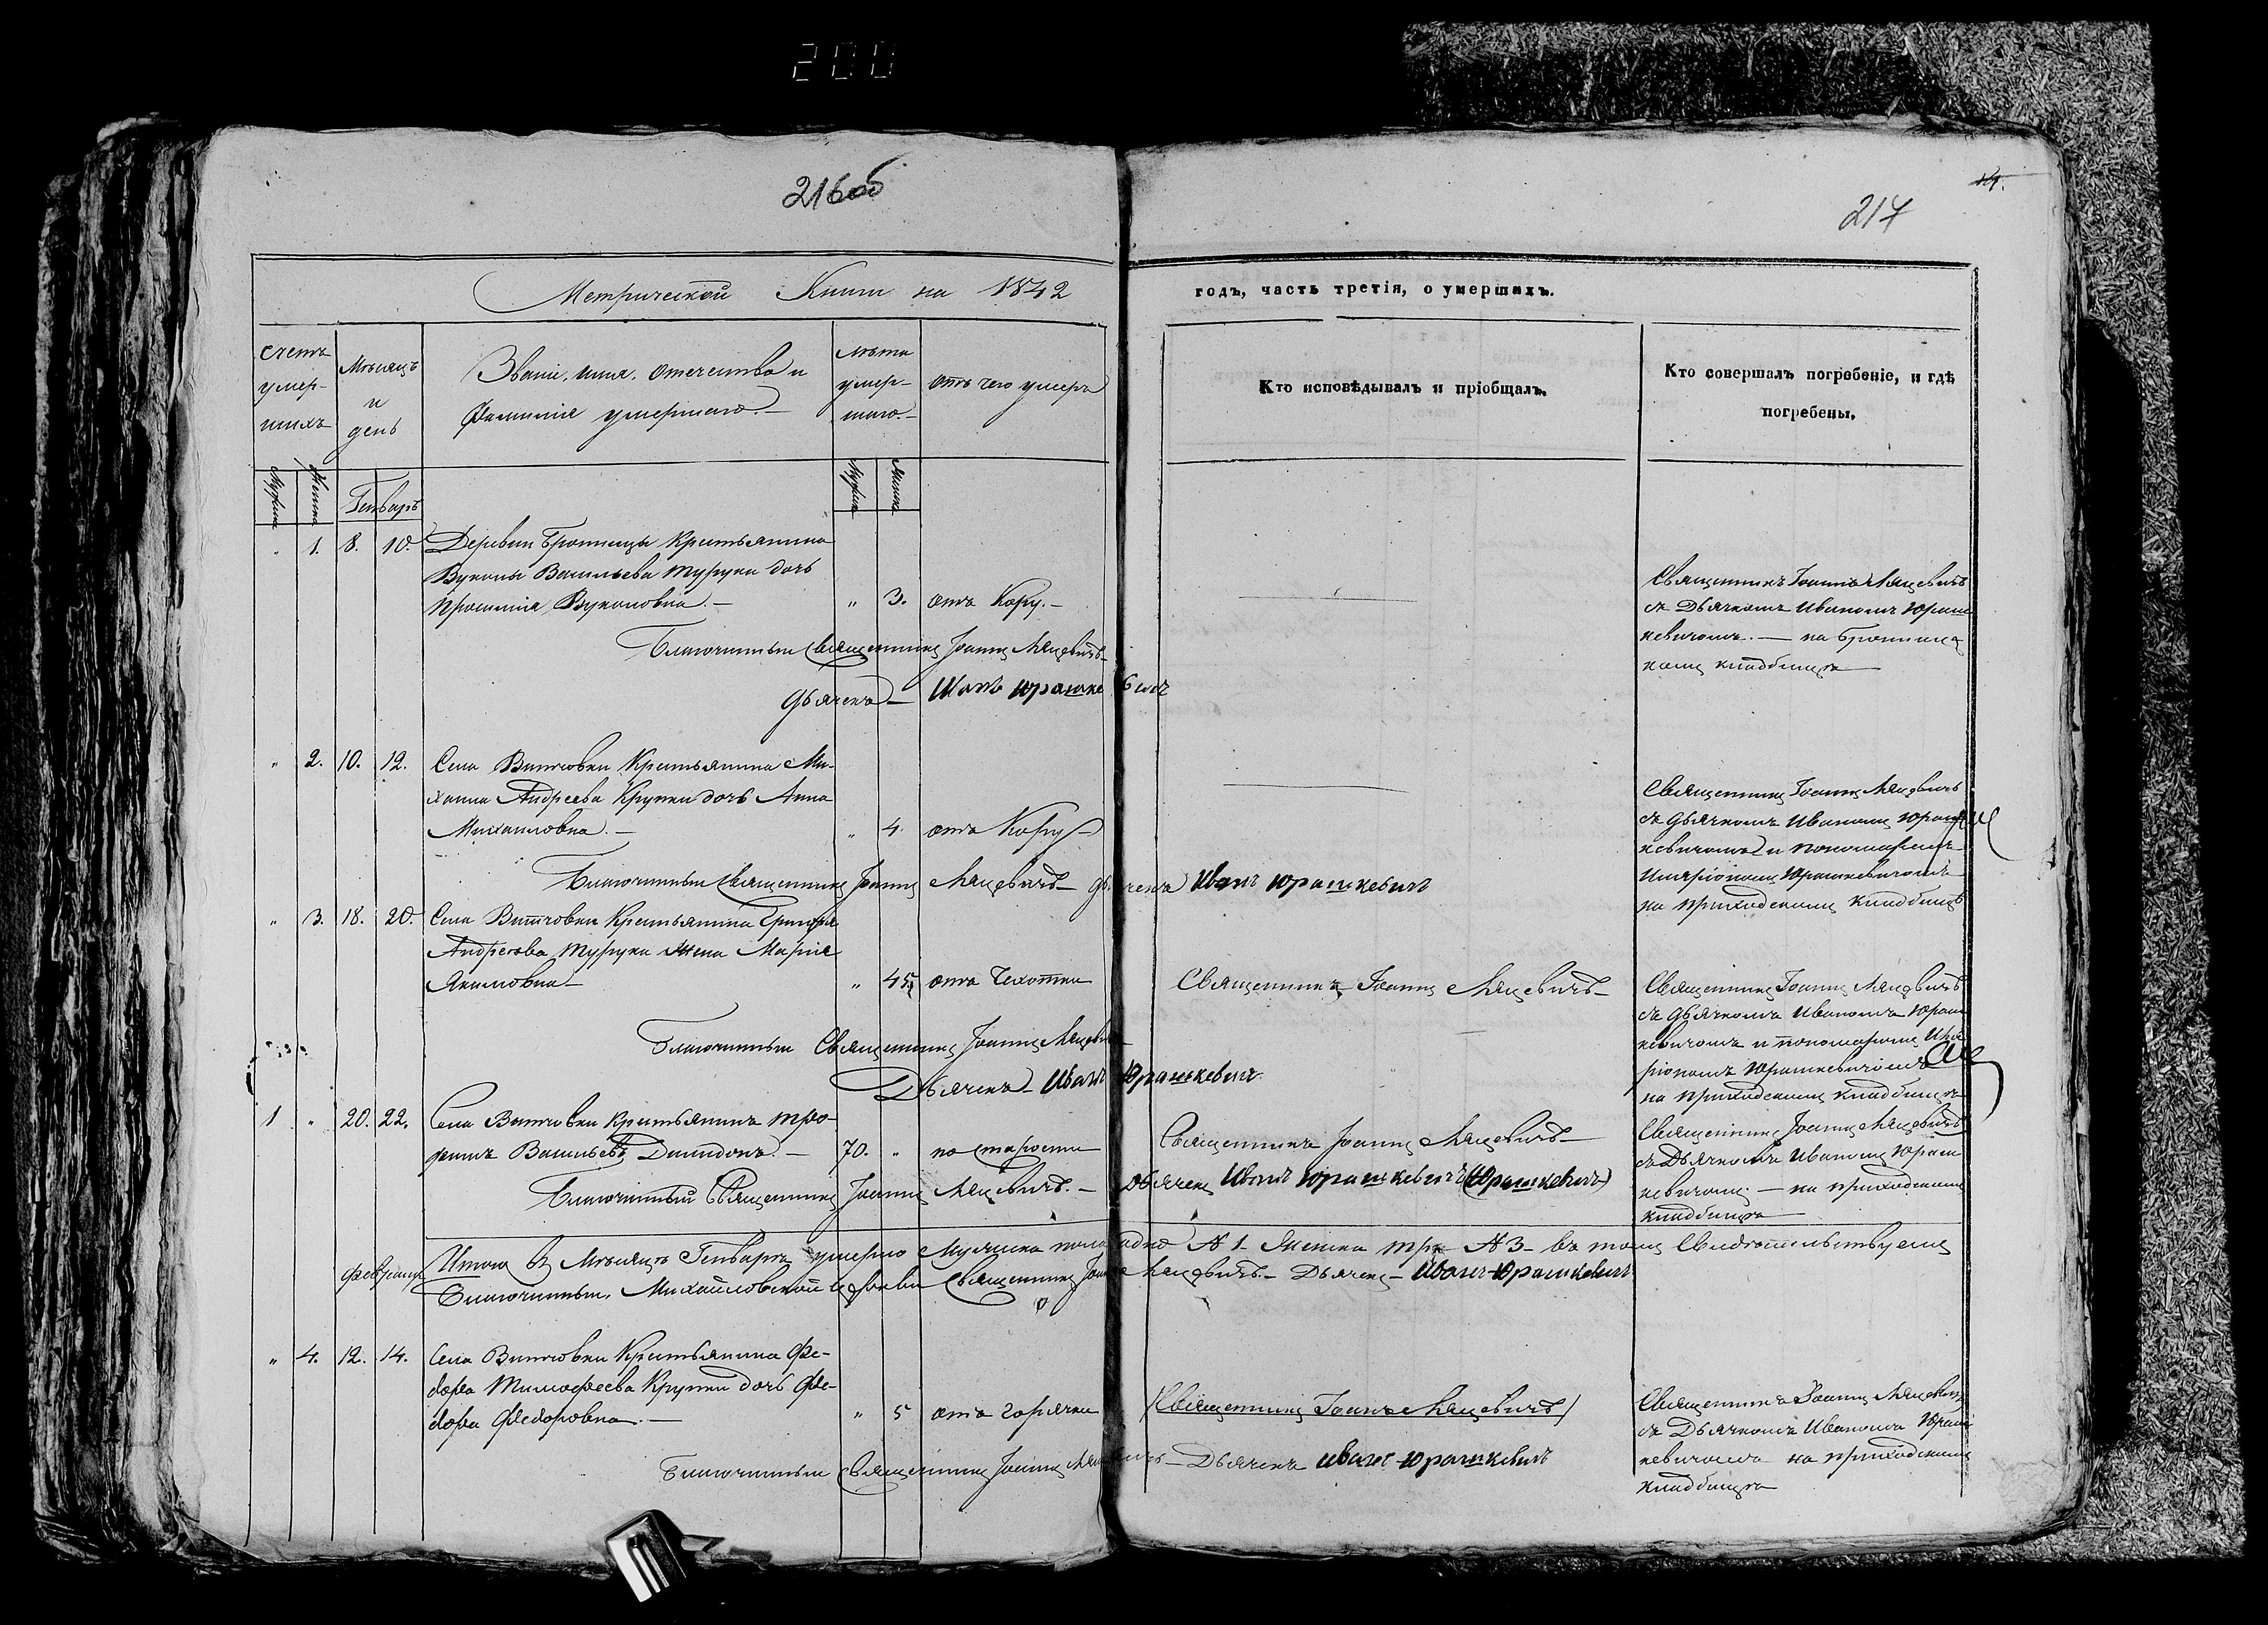 200
216об
217
Метрической Книги на 1842
годъ, часть третія, о умершихъ.
счетъ умер-шихъ
Мѣсяцъ и день
Званіе, имя, отечество и фамилія умершаго.—
лѣта умер-шаго.—
отъ чего умеръ
Кто исповѣдывалъ и пріобщалъ.
Кто совершалъ погребеніе, и гдѣ
погребены.
Мужска
Женска
Генварь
Мужска
Женска
" 1. 8. 10. Деревни Бротницы Крестьянина
Вукола Васильева Турука дочь
Вуколовна.— " 3. отъ Кору.—
Священникъ Іоаннъ Мацевичъ
съ Дьячкомъ Иваномъ Юраш
кевичомъ.— на
комъ кладбищѣ
Благочинный Священникъ Іоаннъ Мацевичъ—
Дьячекъ— Иванъ Юрашкевичъ
" 2. 10. 12. Села Витчовки Крестьянина Ми-
хаила Андреева Крупки дочь Анна
Михаиловна.— " 4. отъ Кору—
Священникъ Іоаннъ Мацевичъ
съ дьячкомъ Иваномъ Юраш
кевичомъ и пономаремъ
Иларіономъ Юрашкевичомъ
на приходскомъ кладбищѣ
Благочинный Священникъ Іоаннъ Мацевичъ— дьячекъ Иванъ Юрашкевичъ
" 3. 18. 20. Села Витчовки Крестьянина Григорія
Андреева Турука жена Марія
Якимовна— " 45. отъ Чехотки
Священникъ Іоаннъ Мацевичъ—
Священникъ Іоаннъ Мацевичъ
съ дьячкомъ Иваномъ Юраш
кевичомъ и пономаремъ Ила
ріономъ Юрашкевичомъ
на приходскомъ кладбищѣ
Благочинный Священникъ Іоаннъ Мацевичъ
Дьячекъ— Иванъ Юрашкевичъ
1 " 20. 22. Села Витчовки Крестьянинъ Тро-
Васильевъ.— 70. " по старости
Священникъ Іоаннъ Мацевичъ—
Священникъ Іоаннъ Мацевичъ
съ Дьячкомъ Иваномъ Юраш
кевичомъ— на приходскомъ
кладбищѣ
Благочинный Священникъ Іоаннъ Мацевичъ.— Дьячекъ Иванъ Юрашкевичъ (Юрашкевичъ)
Итого въ Мѣсяцѣ Генварѣ умерло Мужска пола одно № 1— Женска три № 3— въ томъ Свидѣтельствуемъ
Благочинный, Михайловской Церкви Священникъ Іоаннъ Мацевичъ.— Дьячекъ— Иванъ Юрашкевичъ
Февраля
" 4. 12. 14. Села Витчовки Крестьянина Фе-
дора Тимофеева Крупки дочь Фе-
дора Федоровна.— " 5 отъ горячки
(Священникъ Іоаннъ Мацевичъ)
Священникъ Іоаннъ Мацевичъ
съ Дьячкомъ Иваномъ Юраш
кевичомъ на приходскомъ
кладбищѣ
Благочинный Священникъ Іоаннъ Мацевичъ— Дьячекъ Иванъ Юрашкевичъ